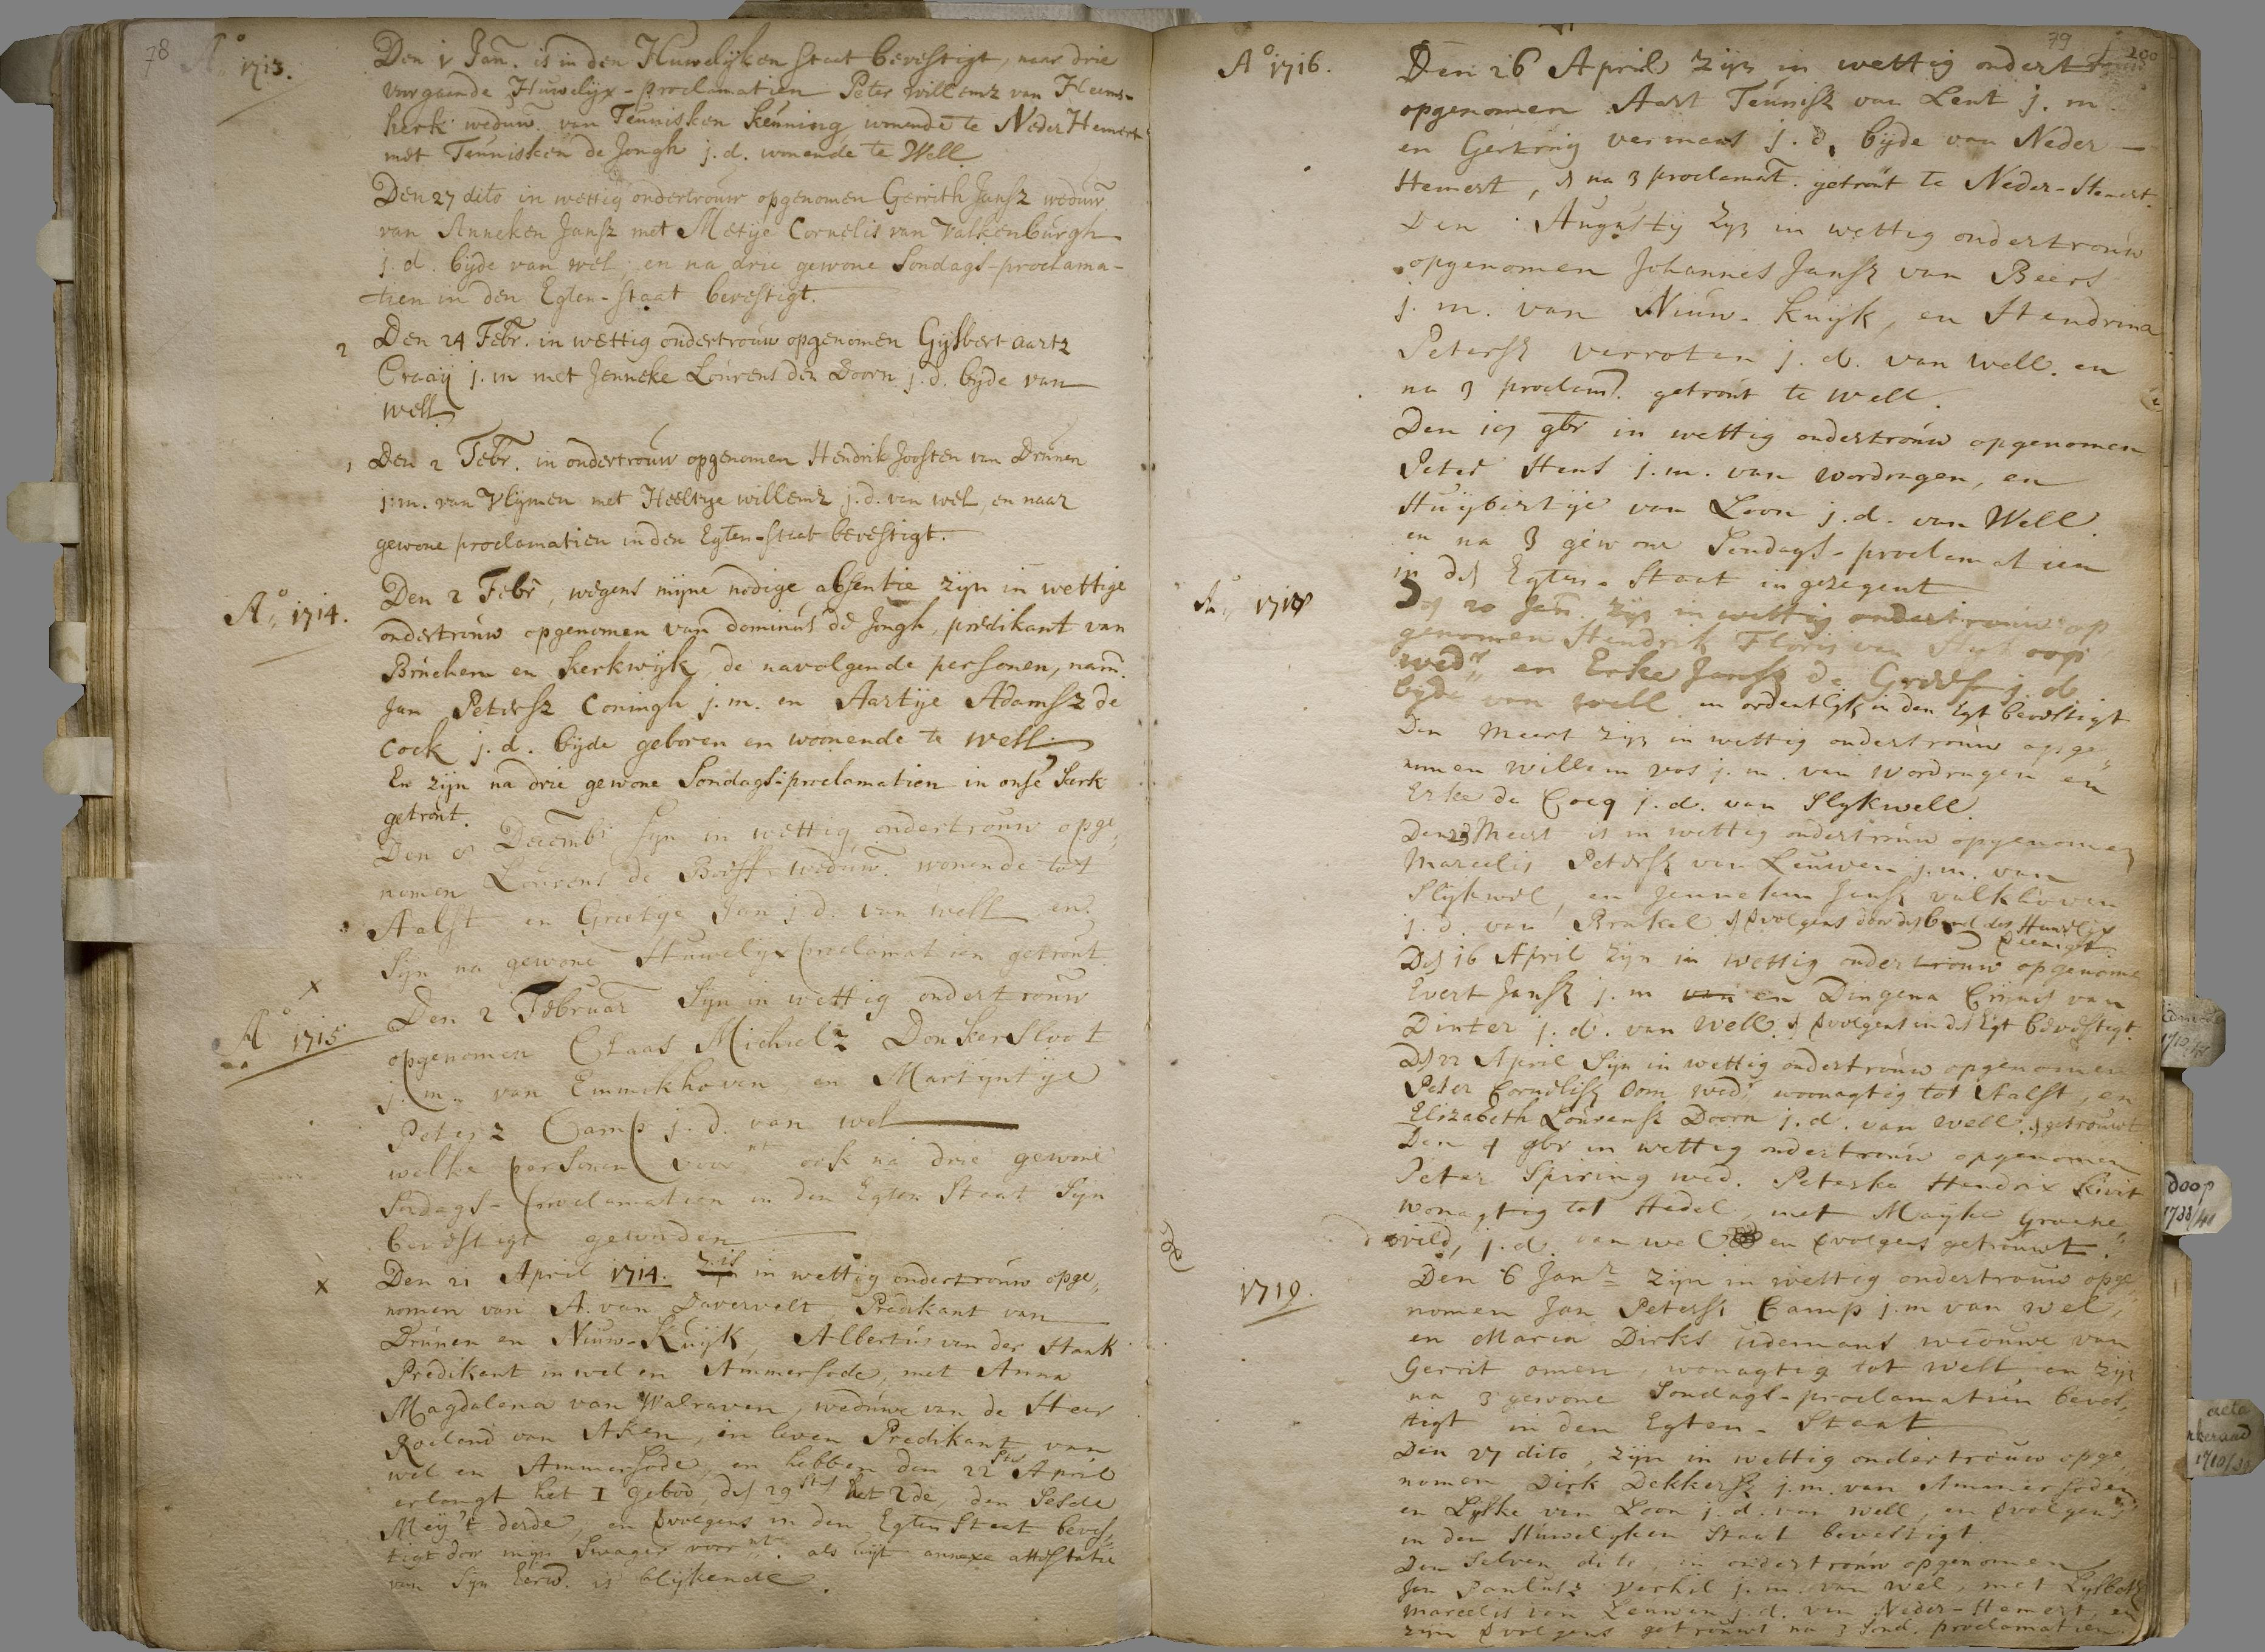 78
Ao 1713.
Den 1 Jan. is in den Huwelijken staat bevestigt, naar drie
voorgaende Huwelijx-proclamatien Peter Willemz van Heems-
kerk weduwr. van Teunisken Kenning wonende te Neder Hemert
met Teunisken de Jongh j.d. wonende te Well
Den 27 dito in wettig ondertrouw opgenomen Gerrith Jansz weduwr
van Anneken Jansz met Metije Cornelis van Valkenburgh
j.d. bijde van wel, en na drie gewone Sondags-proclama-
tien in den Egten-staat bevestigt.
2 Den 24 Febr. in wettig ondertrouw opgenomen Gijsbert aartz
Craaij j.m met Jenneke Lourens den Doorn j.d. bijde van
well
1 Den 2 Febr. in ondertrouw opgenomen Hendrik Joosten van Drunen
j.m. van Vlijmen met Heeltye willemz j.d. van wel, en naar
gewone proclamatien in den Egten-staat bevestigt.
A,, 1714.
Den 2 Febr, wegens mijne nodige absentie zijn in wettige
ondertrouw opgenomen van dominus de Jongh, predikant van
Bruchem en Kerkwijk, de navolgende personen, nam.
Jan Petersz Coningh j.m. en Aartije Adamsz de
Cock j.d. bijde geboren en woonende te well.
En zijn na drie gewone Sondags-proclamatien in onse kerk
getrout.
Den 8 Decembr sijn in wettig ondertrouw opge,,
nomen Lourens de Borff weduwr. wonende tot
Aalst en Grietije Jan j.d. van well en
Sijn na gewone Huwelijx proclamatien getrout.
x
Ao 1715
Den 2 Februar Sijn in wettig ondertrouw
opgenomen Claas Michielz Donkersloot
j.m. van Emmikhoven en Martijntije
Petersz Camp j.d. van wel
welke personen voornt ook na drie gewone
Sondags-proclamatien in den Egten Staat Sijn
bevestigt geworden
x Den 21 April 1714. is in wettig ondertrouw opge,,
nomen van A. van Daverveld, Predikant van
Drunen en Nieuw-Kuijk, Albertus van der Haak
Predikant in wel en Ammersode, met Anna
Magdalena van Walraven, weduwe van de Heer
Roeland van Aken, in leven Predikant van
wel en Ammersode, en hebben den 22sten April
erlangt het I gebod, des 29sten het 2de, den Sesde
Meij 't derde, en vvolgens in den Egten Staat beves,,
tigt door mijn Swager voornt. als uijt annexe attestatie
van Sijn Eerw. is blijkende.
79
200
Ao 1716.
Den 26 April zijn in wettig ondertrouw
opgenomen Aart Teunisz van Lent j.m.
en Gertruij vermaas j.d. bijde van Neder-
Hemert, en na 3 proclamat. getrout te Neder-Hemert.
Den Augusty zijn in wettig ondertrouw
opgenomen Johannes Jansz van Beers
j.m. van Nieuw-Kuijk, en Hendrina
Petersz verroten j.d. van well. en
na 3 proclam. getrout te well.
Den 19 9br in wettig ondertrouw opgenomen
Peter Hens j.m. van wordragen, en
Huijbertije van Loon j.d. van Well
en na 3 gewone Sondags-proclamatien
in den Egten-Staat ingezegent
A,, 1718
Den 20 Jan. zijn in wettig ondertrouw op
genomen Hendrik Floris van
wedr,, en Erke Jansz de Groot j.d.
bijde van well en ordentlijk in den Egt bevestigt
Den Meert zijn in wettig ondertrouw opge,,
nomen willem vos j.m. van wordragen en
Erke de Cocq j.d. van Slykwell.
Den 23 Meert is in wettig ondertrouw opgenomen
Marcelis Petersz van Leuwen j.m. van
Slijkwel, en Jenneken Jansz valkhoven
j.d. van Brakel en vvolgens door den band des Huwelijx
vereenigt
Den 16 April zijn in wettig ondertrouw opgenome
Evert Jansz j.m van en Dingena Crijnis van
Dinter j.d. van Well. en vvolgens in den Egt bevestigt.
Den 22 April Sijn in wettig ondertrouw opgenomen
Peter Cornelisz Oom wedr woonagtig tot Aalst, en
Elizabeth Lourensz Doorn j.d. van Well. en getrouwt
Den 4 9br in wettig ondertrouw opgenomen
Peter Spiring wed. Peterke Hendrix Kivit
wonagtig tot Hedel, met Maijke Groene,,
wild, j.d. van wel en vvolgens getrouwt.
1719.
Den 6 Janr zijn in wettig ondertrouw opge,,
nomen Jan Petersz Camp j.m van wel,
en Maria Dirks udemans weduwe van
Gerrit omen, wonagtig tot well en zijn
na 3 gewone Sondags-proclamatien beves,,
tigt in den Egten-Staat
Den 27 dito, zijn in wettig ondertrouw opge,,
nomen Dirk Dekkersz j.m. van Ammersoden
en Lijske van Loon j.d. van well, en vvolgens
in den Huwelyken Staat bevestigt
Den Selven dito, in ondertrouw opgenomen
Jan Paulusz Verhil j.m. van wel, met Lijsbeth
Marcelis van Leuwen j.d. van Neder-Hemert, en
zijn vvolgens getrouwt na 3 Sond. proclamatien.
doop
1733/41
acta
kerkeraad
1710/